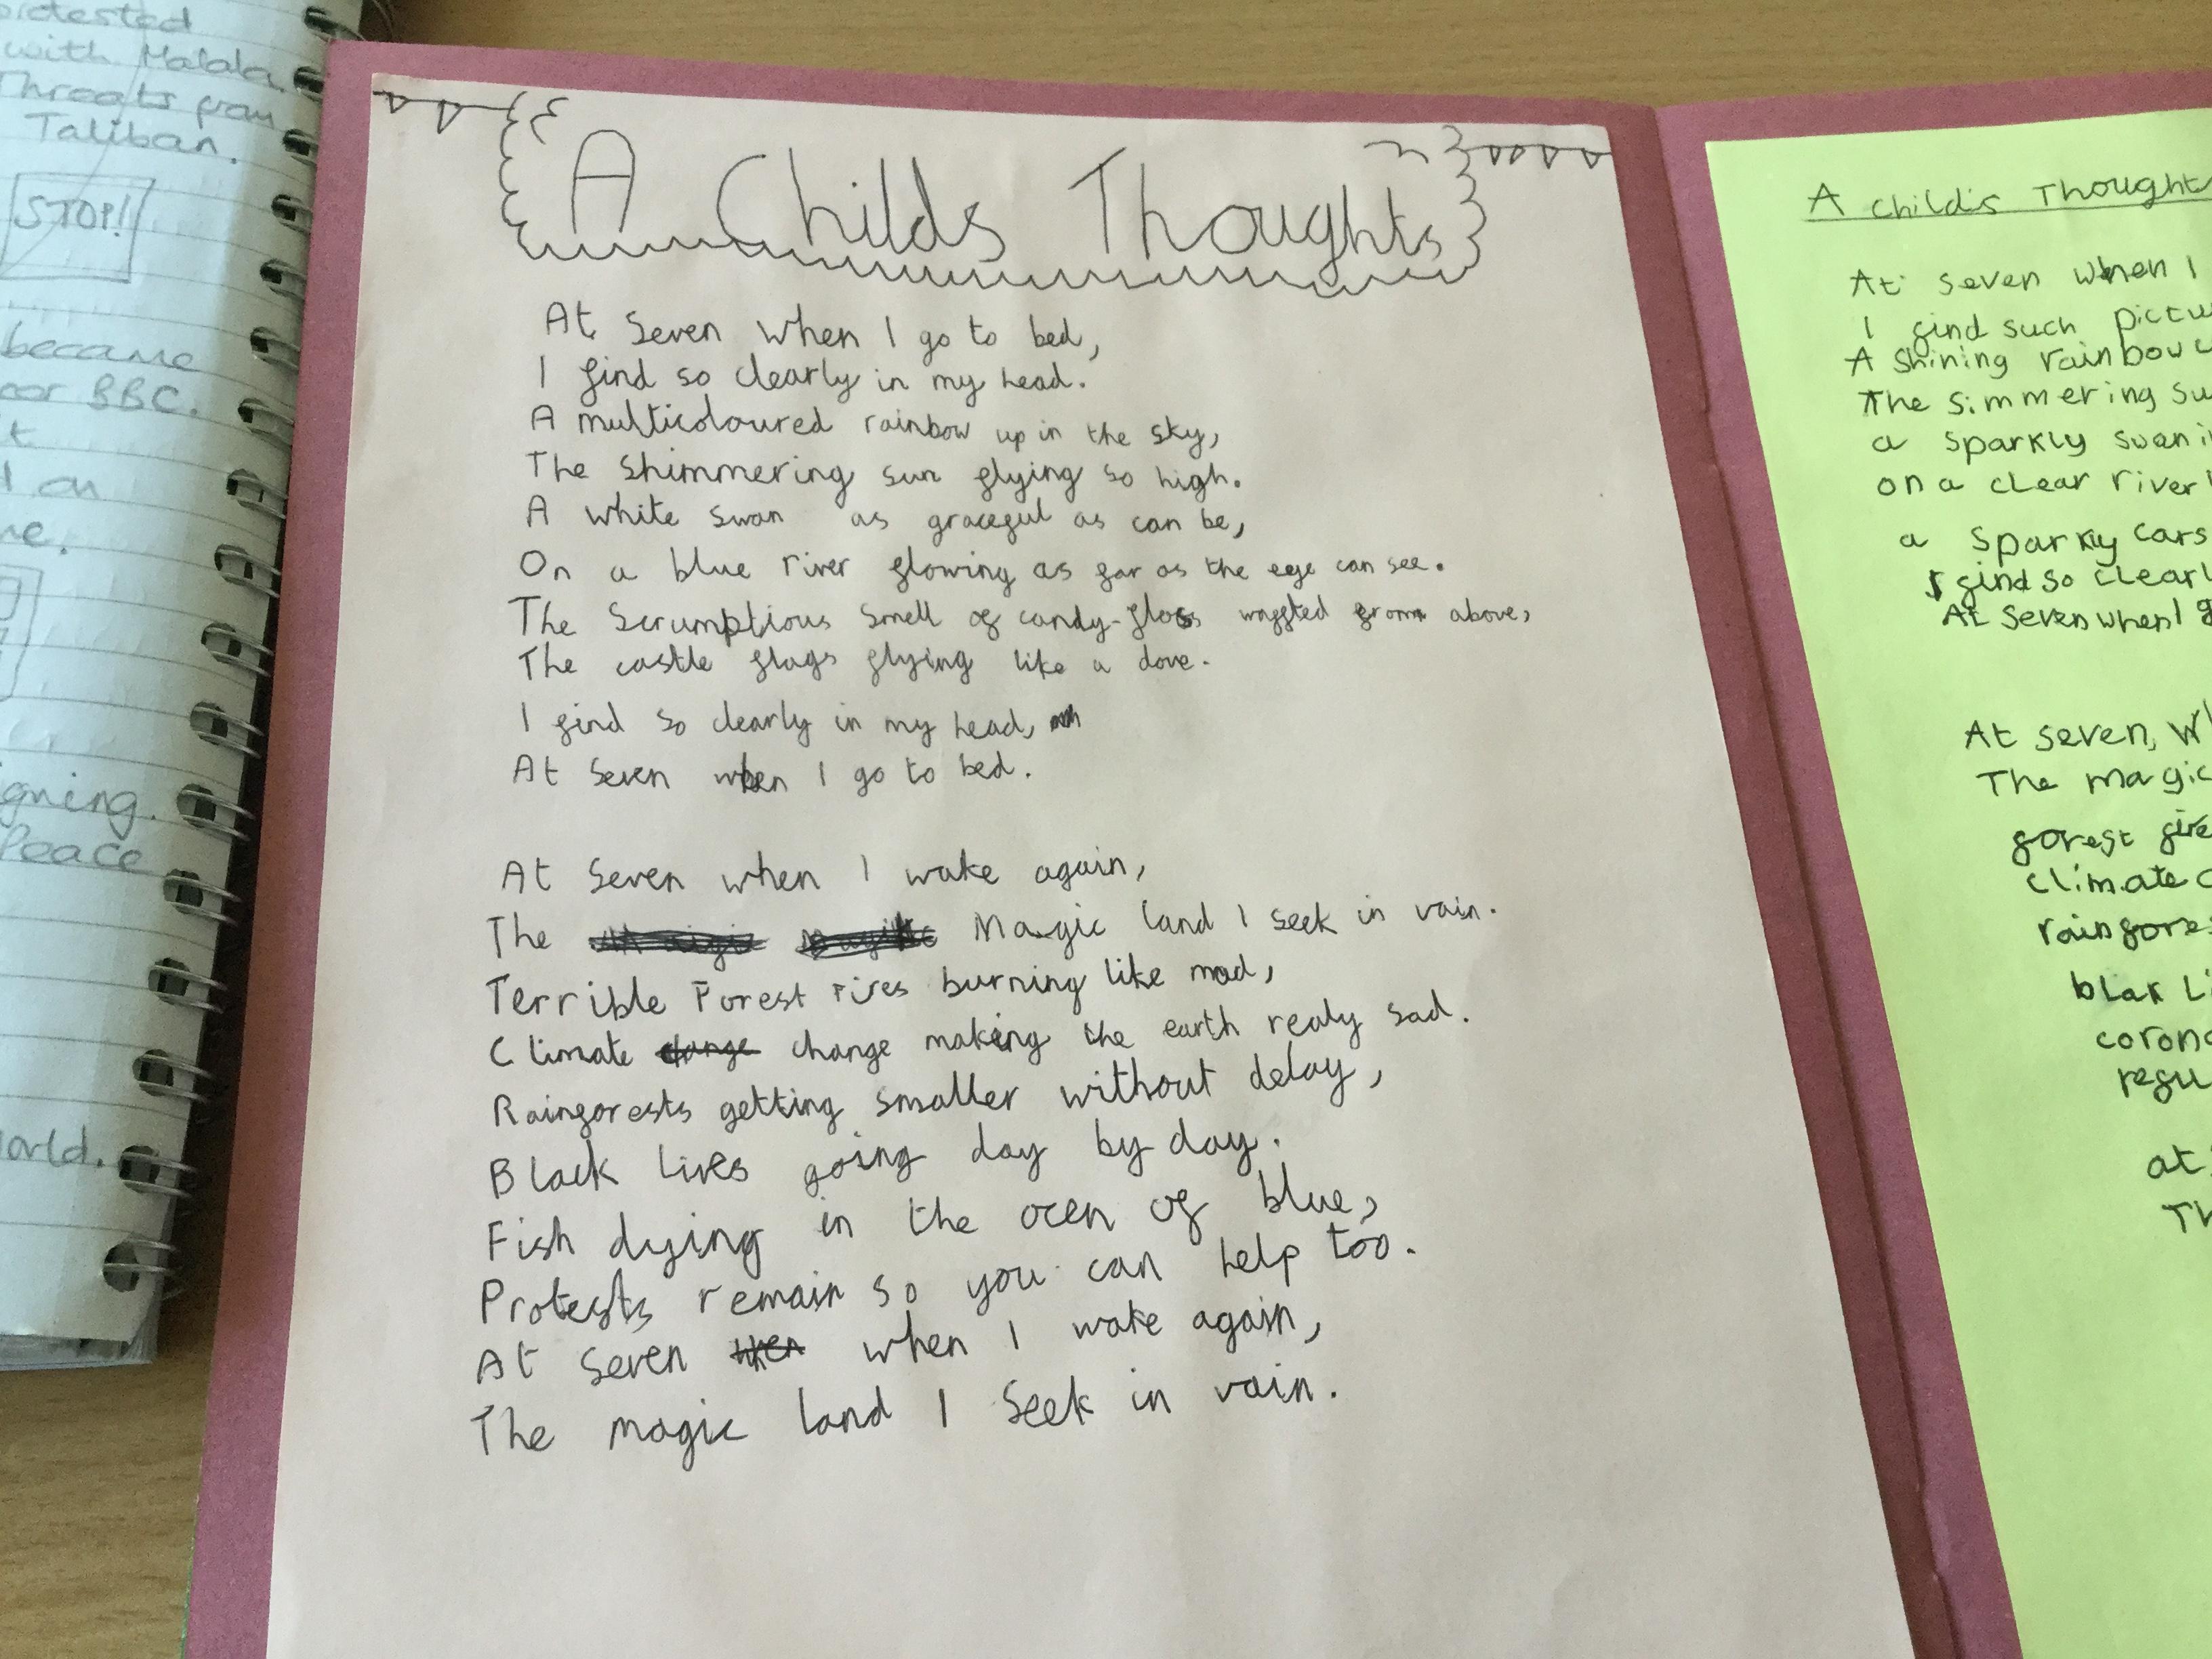 with Malala
Threats from
Taliban.
STOP!
became
BBC.
Peace
A Childs Thoughts
At Seven when I go to bed,
I find so clearly in my head.
A multicoloured rainbow up in the sky,
The Shimmering sun flying so high.
A white swan as graceful as can be,
On a blue river flowing as far as the eye can see.
The Scrumptious smell of candy-floss waffted from above,
The castle flags flying like a dove.
I find so clearly in my head,
At Seven when I go to bed.
At Seven when I wake again,
The Magic land I seek in vain.
Terrible Forest Fires burning like mad,
Climate change making the earth realy sad.
Rainforests getting smaller without delay,
Black lives going day by day.
Fish dying in the ocen of blue,
Protests remain so you can help too.
At seven when I wake again,
The magic land I Seek in vain.
A child's Thought
At seven when I
I find such
A Shining rainbow
The simmering
a sparkly swan
on a clear river
a sparkly cars
I find so
At Seven when I
At seven,
The magic
forest
climate
blak
at